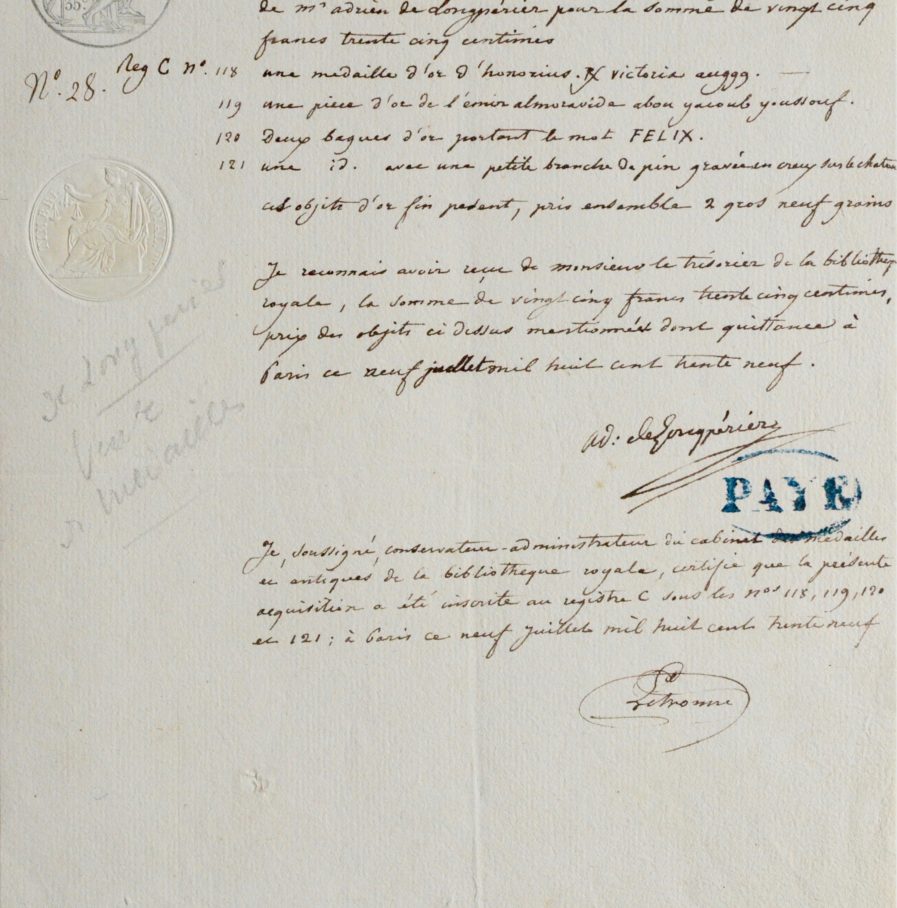 de mr adrien de Longpérier pour la somme de vingt cinq
francs trente cinq centimes
No. 28. Reg C no. 118 une medaille d'or d'honorius. ℞ victoria auggg. —
119 une piece d'or de l'émir almoravide abou yacoub youssouf.
120 Deux bagues d'or portant le mot FELIX.
121 une id. avec une petite branche de pin gravée en creux sur le chaton
ces objets d'or fin pesent, pris ensemble 2 gros neuf grains
Je reconnais avoir reçu de monsieur le trésorier de la biblioth
royale, la somme de vingt cinq francs trente cinq centimes,
prix des objets ci dessus mentionnés dont quittance à
Paris ce neuf juillet mil huit cent trente neuf.
de Longperier
Vente
médailles
ad: de Longpérier
PAYÉ
Je, soussigné, conservateur-administrateur du cabinet des médailles
et antiques de la bibliotheque royale, certifie que la présente
acquisition a été inscrite au registre C sous les nos 118, 119, 120
et 121; à Paris ce neuf juillet mil huit cent trente neuf
Letronne